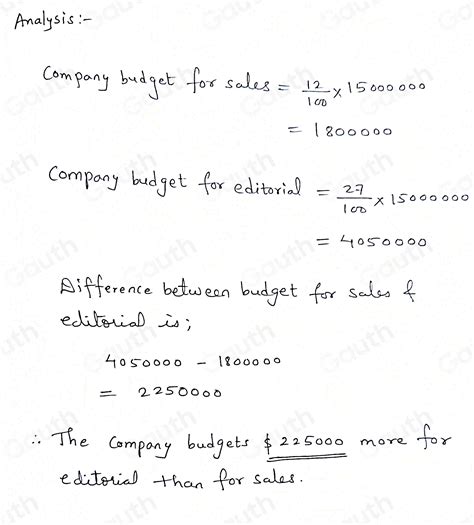 Analysis:-
Company budget for sales = 12/100 × 15000000
= 1800000
Company budget for editorial = 27/100 × 15000000
= 4050000
Difference between budget for sales &
editorial is;
4050000 - 1800000
= 2250000
∴ The Company budgets $225000 more for
editorial than for sales.